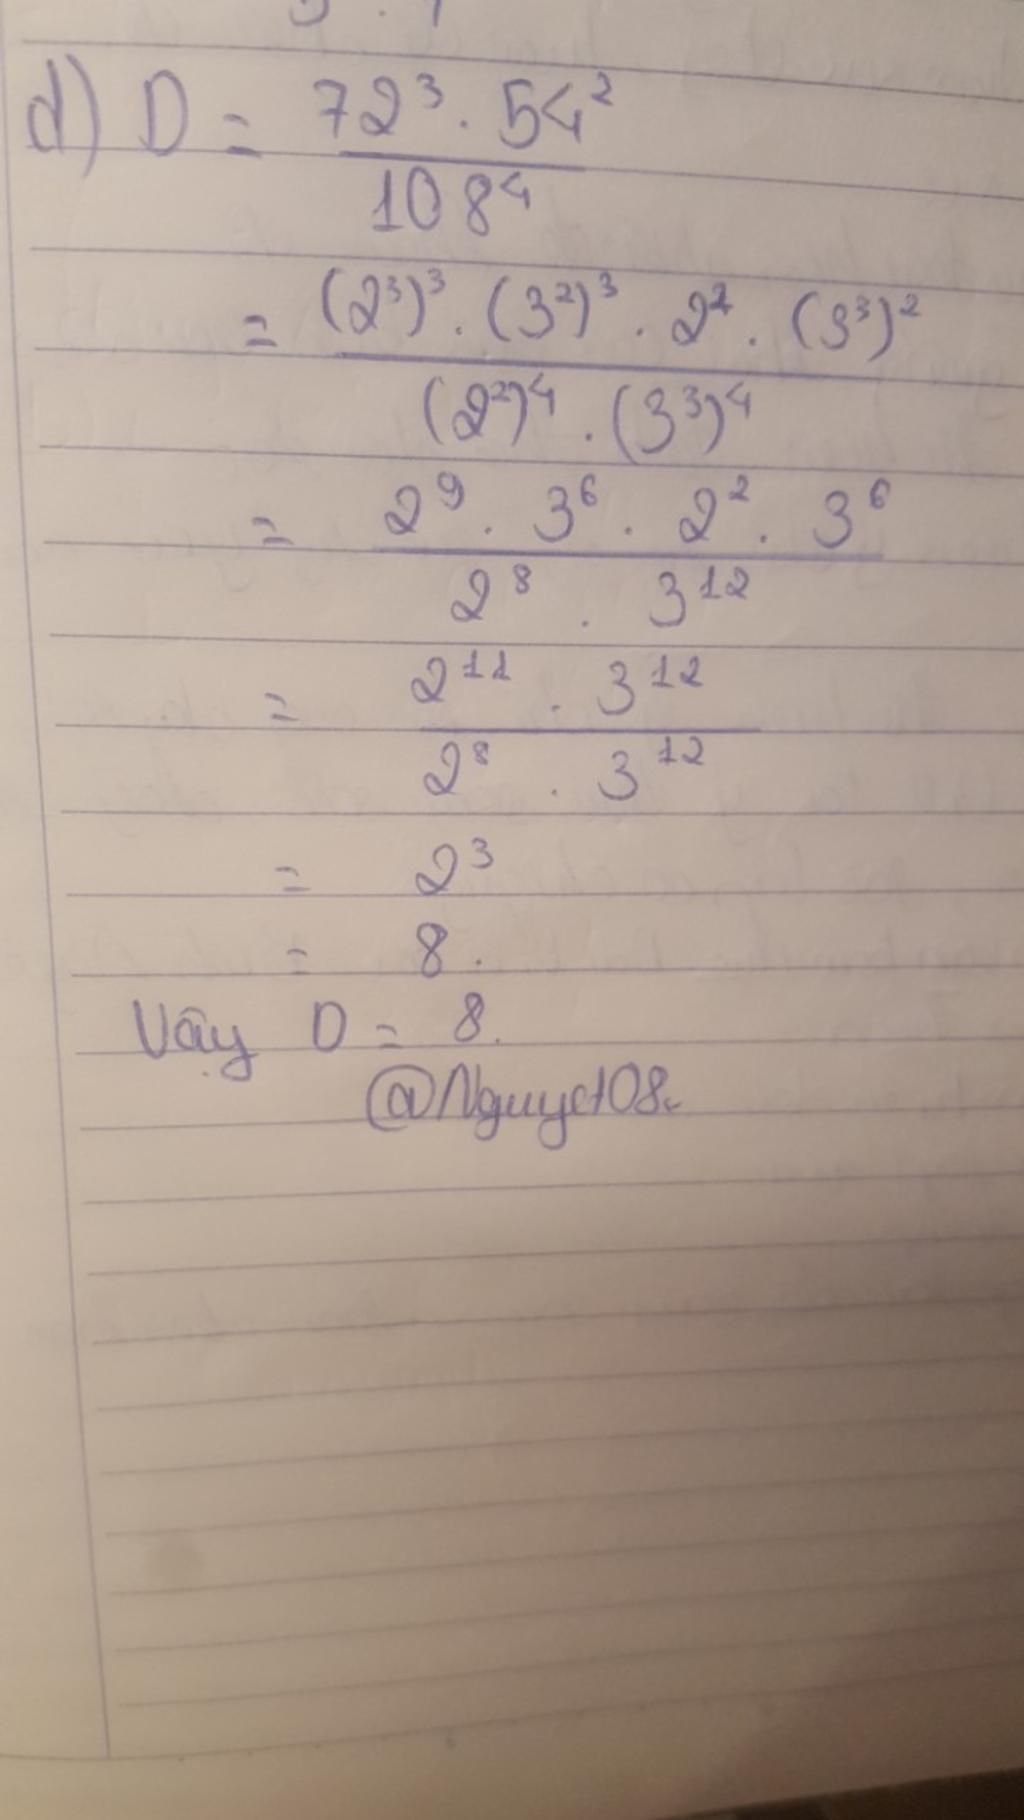 d) D = 72³ . 54²
108⁴
= (2³)³ . (3²)³ . 2² . (3³)²
(2²)⁴ . (3³)⁴
= 2⁹ . 3⁶ . 2² . 3⁶
2⁸ . 3¹²
= 2¹¹ . 3¹²
2⁸ . 3¹²
= 2³
= 8.
Vậy D = 8.